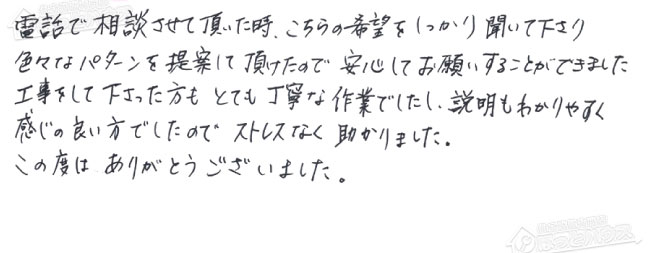 電話で相談させて頂いた時、こちらの希望をしっかり聞いて下さり
色々なパターンを提案して頂けたので安心してお願いすることができました
工事をして下さった方もとても丁寧な作業でしたし、説明もわかりやすく
感じの良い方でしたのでストレスなく助かりました。
この度はありがとうございました。